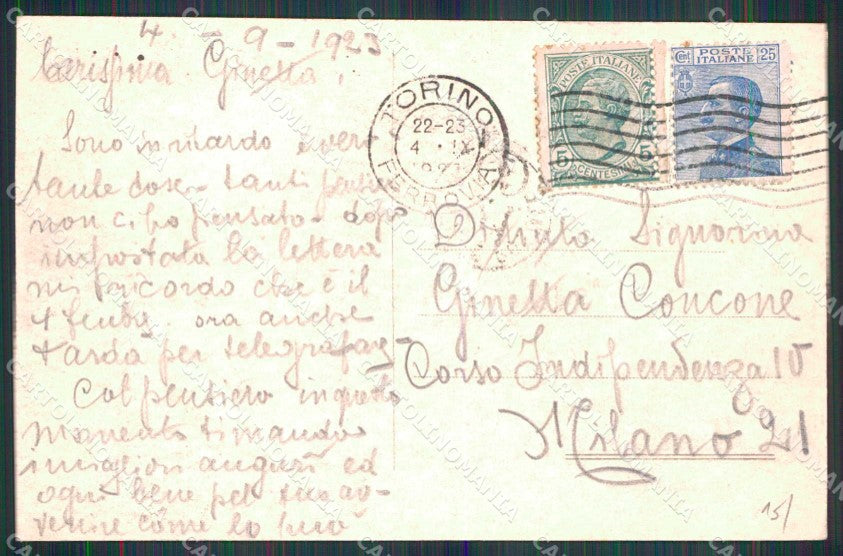 4 - 9 - 1923
Carissima Ginetta,
Sono in ritardo
tante cose tanti
non ci ho pensato dopo
impostata la lettera
mi ricordo che è il
4 ora anche
tarda per telegrafar-
Col pensiero in questo
momento ti mando
i migliori auguri ed
ogni bene pel tuo av-
venire come lo può
TORINO
22-23
4 · IX
FERROVIA
POSTE ITALIANE
5 5
CENTESIMI
Cent POSTE 25
ITALIANE
Distinta Signorina
Ginetta Concone
Corso Indipendenza 10
Milano 21
15/
CARTOLINOMANIA